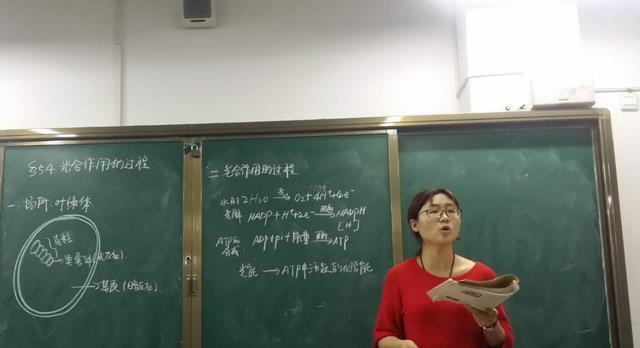 §5.4 光合作用的过程
一. 场所: 叶绿体
基粒
类囊体(光反应)
基质(暗反应)
二. 光合作用的过程
水的 2H₂O 光→ O₂+4H⁺+4e⁻
光解 NADP+H⁺+2e⁻ 酶→ NADPH
[H]
ATP的 ADP+Pi+能量 酶→ ATP
合成
光能 → ATP中活跃的化学能